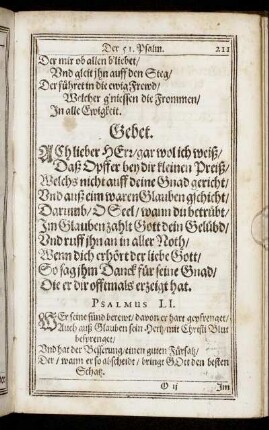 Der 51. Psalm. 211
Der mir ob allen b'liebet/
Vnd gleit jhn auff den Steg/
Der führet in die ewig Frewd/
Welcher g'niessen die Frommen/
In alle Ewigkeit.
Gebet.
ACh lieber HErr/gar wol ich weiß/
Daß Opffer bey dir kleinen Preiß/
Welchs nicht auff deine Gnad gericht/
Vnd auß eim waren Glauben gschicht/
Darumb/O Seel/wann du betrübt/
Im Glauben zahlt Gott dein Gelübd/
Vnd ruff jhn an in aller Noth/
Wenn dich erhört der liebe Gott/
So sag jhm Danck für seine Gnad/
Die er dir offtmals erzeigt hat.
PSALMUS LI.
WEr seine sünd berewt/davon er hart gepfrenget/
Auch auß Glauben sein Hertz/mit Christi Blut
besprenget/
Vnd hat der Besserung/einen guten Fürsatz/
Der/wann er so abscheidt/bringt GOtt den besten
Schatz.
O ij Im